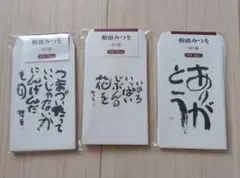 相田みつを
つまづいたって
いいじゃないか
にんげんだ
もの
みつを
相田みつを
いのち
いっぱい
じぶんの
花を
みつを
相田みつを
ありが
とう
みつを